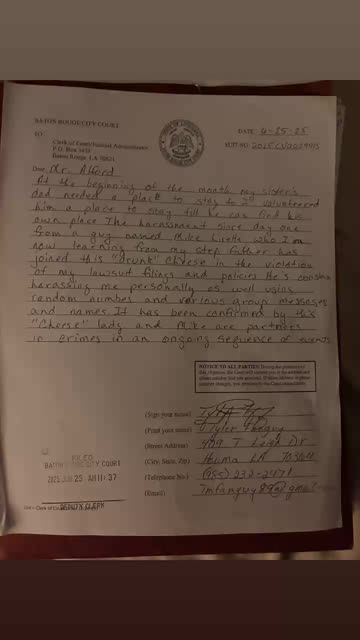 BATON ROUGE CITY COURT
TO:
Clerk of Court/Judicial Administrator
P.O. Box 3438
Baton Rouge, LA 70821
DATE 6-25-25
SUIT NO.
Dear Mr. Alford
At the beginning of the month my sister's
dad needed a place to stay so I volunteered
him a place to stay till he can find his
own place The harassment since day one
from a guy named Mike who I'm
now learning from my step father has
joined this "drunk" Cheese in the violation
of my lawsuit filings and policy He's
harassing me personally as well using
random numbers and various group messages
and names. It has been confirmed by this
"Cheese" lady and Mike are partners
in crimes in an ongoing sequence of events
NOTICE TO ALL PARTIES:
(Sign your name)
(Print your name) Tyler
(Street Address) 409 T Dr
(City, State, Zip) Houma LA
(Telephone No.) (985) 232-2471
(Email)
FILED
BATON ROUGE CITY COURT
2025 JUN 25 AM 11:37
DEPUTY CLERK